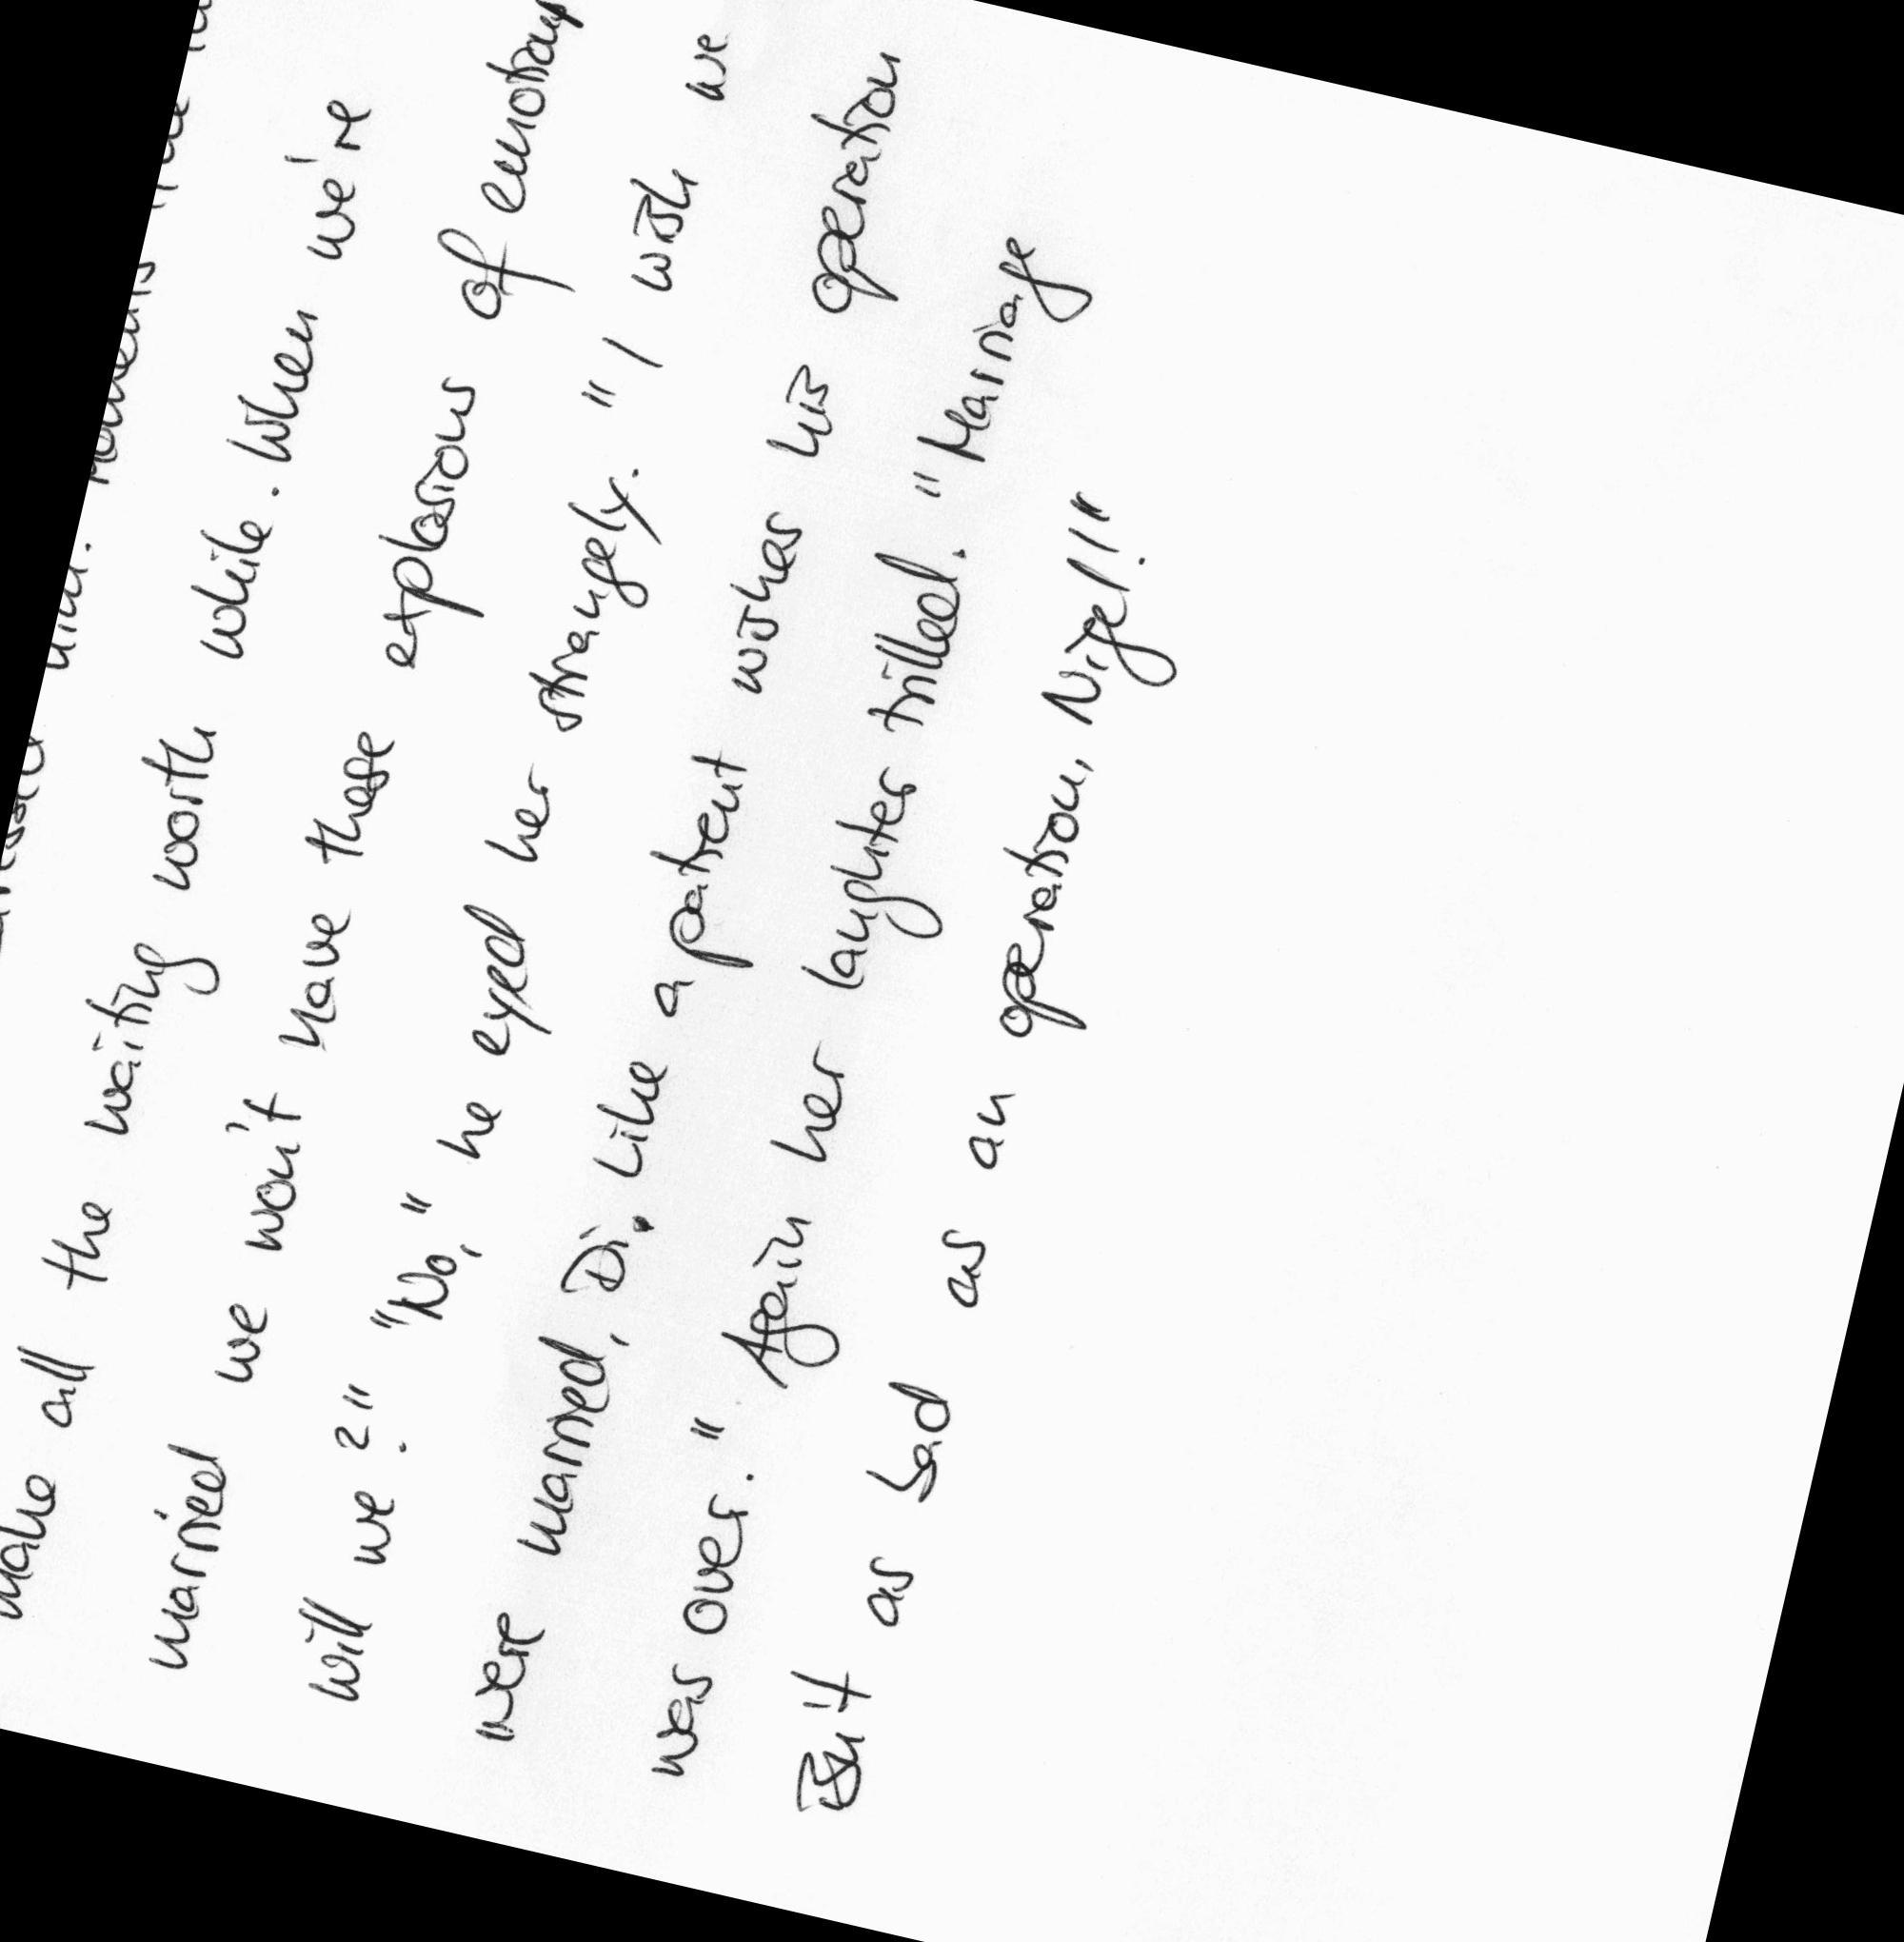 make all the waiting worth while. When we're
married we won't have these explosions of emotion,
will we?" "No," he eyed her strangely. "I wish we
were married, Di. Like a patient wishes his operation
was over." Again her laughter trilled. "Marriage
But as bad as an operation, Nigel!"